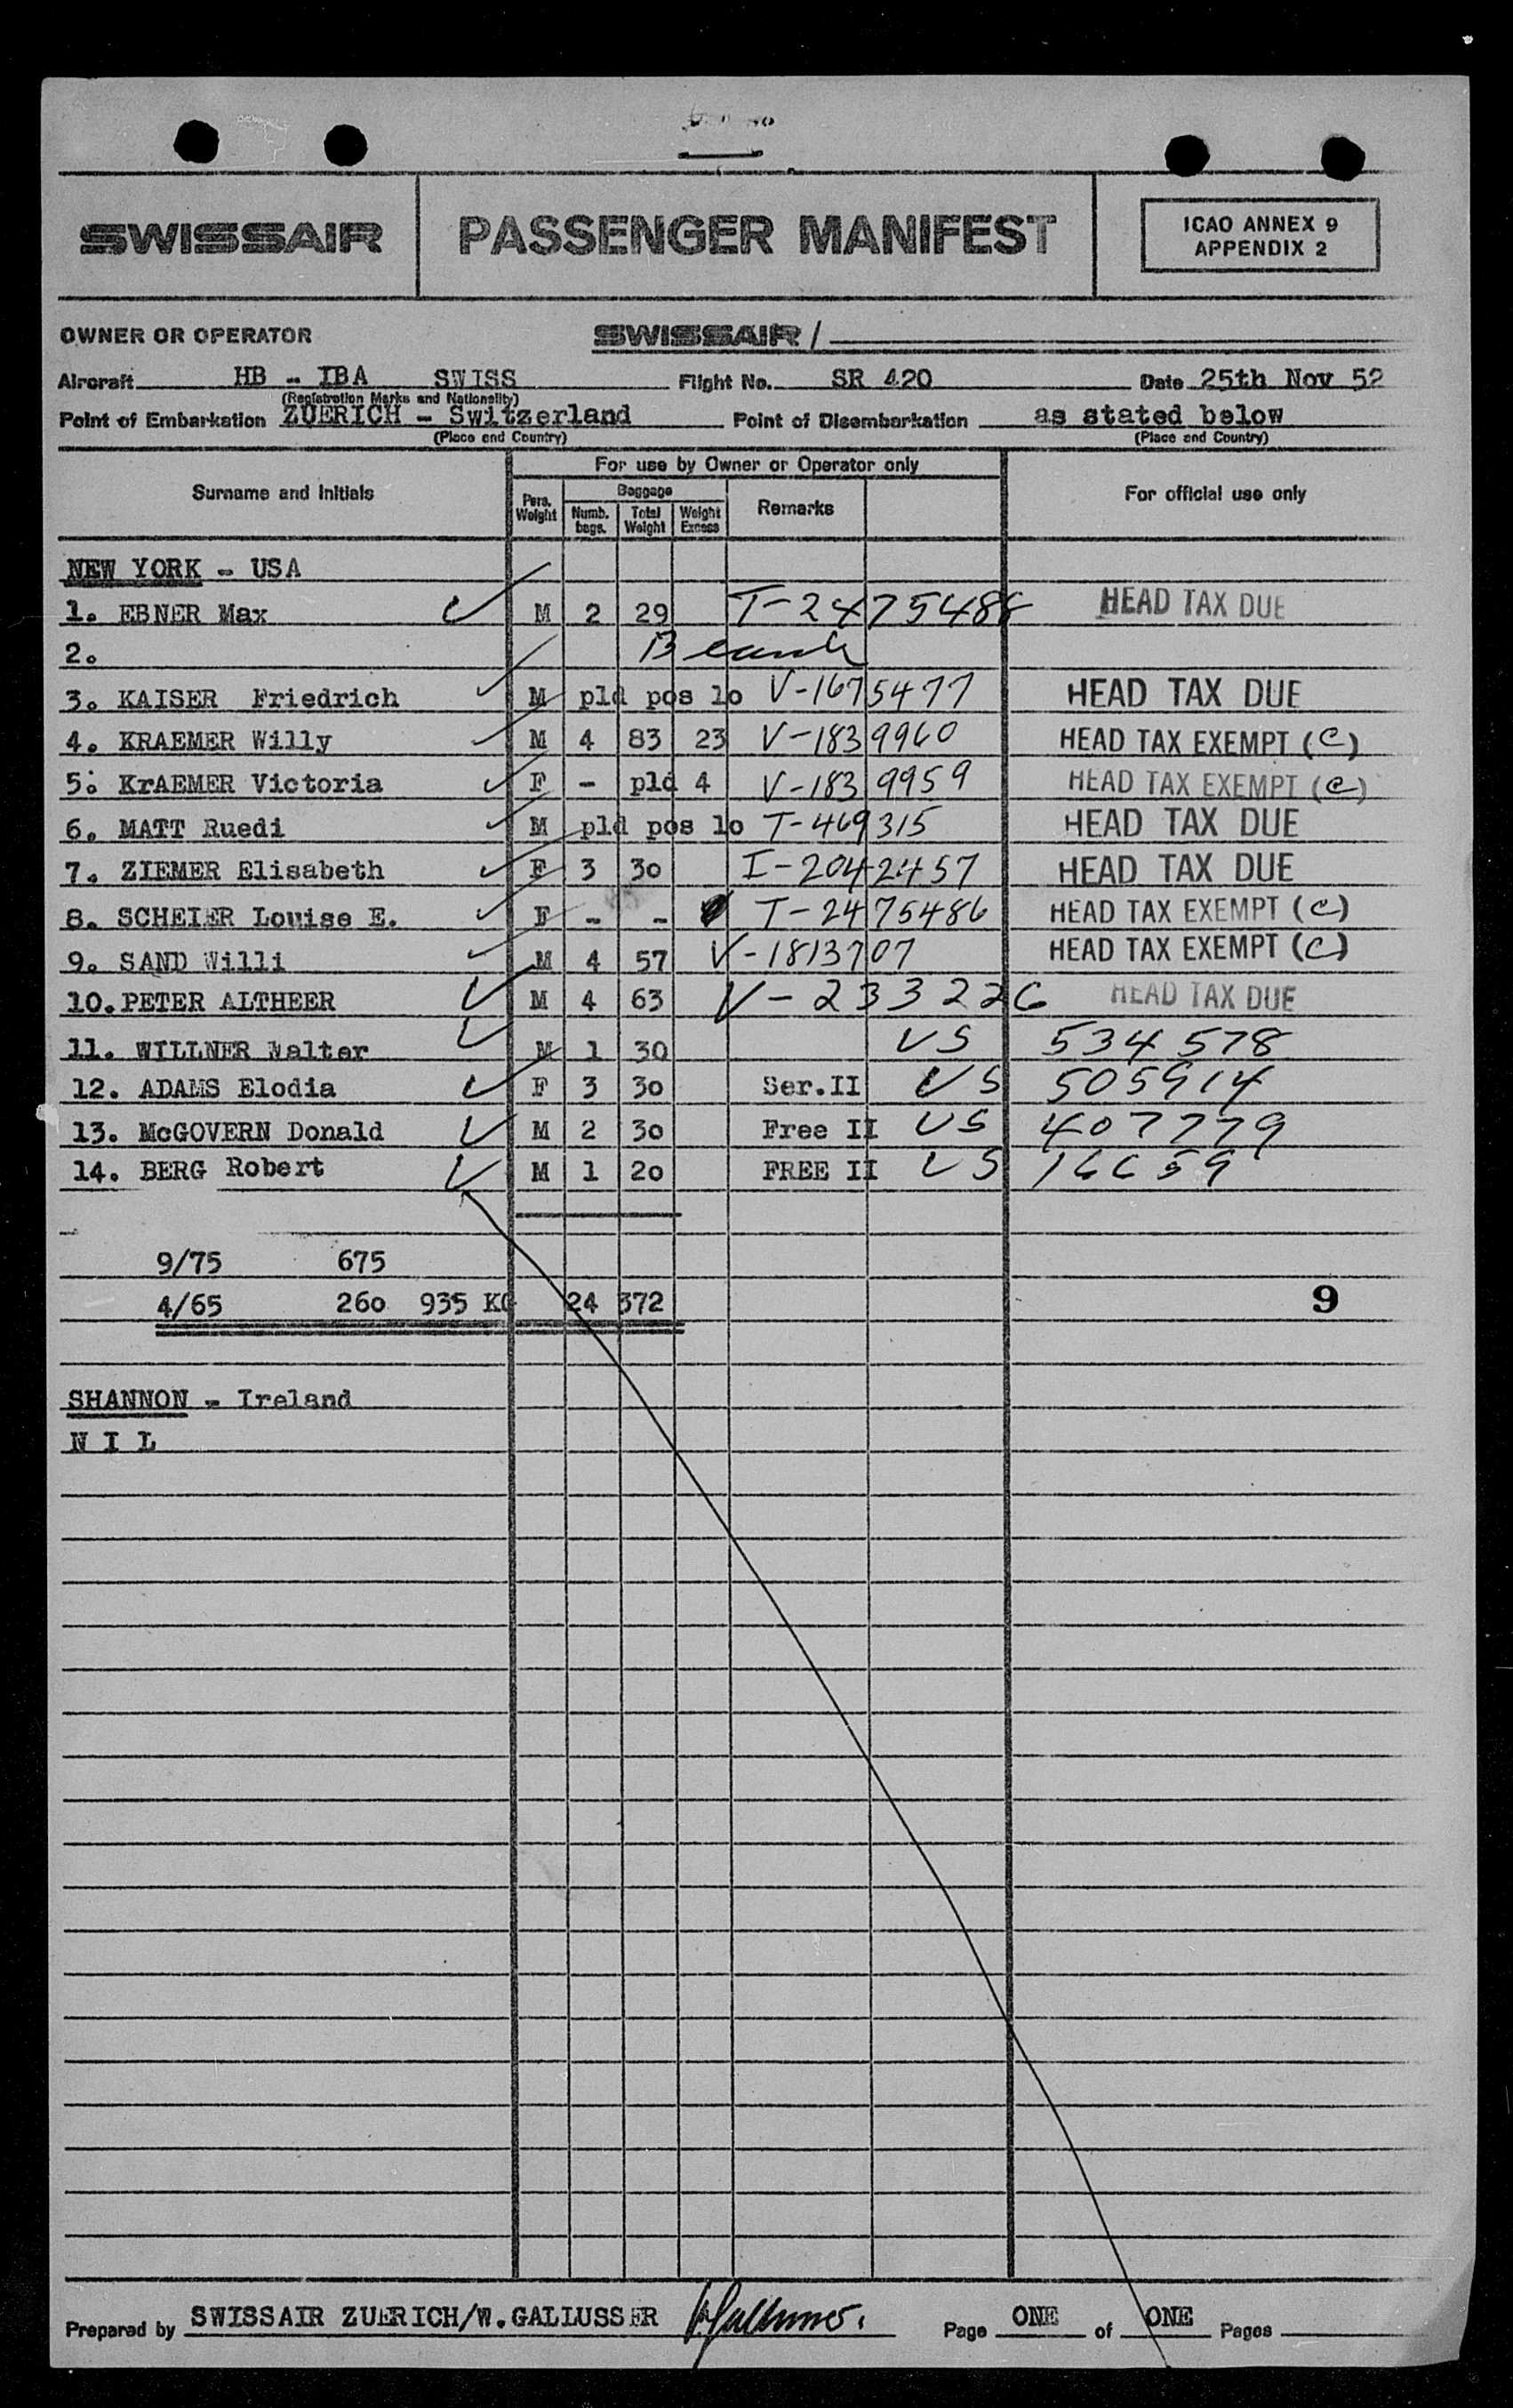 SWISSAIR PASSENGER MANIFEST ICAO ANNEX 9
APPENDIX 2
OWNER OR OPERATOR SWISSAIR /
Aircraft HB - IBA SWISS Flight No. SR 420 Date 25th Nov 52
(Registration Marks and Nationality)
Point of Embarkation ZUERICH - Switzerland Point of Disembarkation as stated below
(Place and Country) (Place and Country)
For use by Owner or Operator only
Surname and Initials Pers. Weight Baggage Numb. bags. Total Weight Weight Excess Remarks For official use only
NEW YORK - USA
1. EBNER Max M 2 29 T-2475488 HEAD TAX DUE
2. Blank
3. KAISER Friedrich M pld pos lo V-1675477 HEAD TAX DUE
4. KRAEMER Willy M 4 83 23 V-1839960 HEAD TAX EXEMPT (C)
5. KrAEMER Victoria F - pld 4 V-1839959 HEAD TAX EXEMPT (C)
6. MATT Ruedi M pld pos lo T-469315 HEAD TAX DUE
7. ZIEMER Elisabeth F 3 30 I-2042457 HEAD TAX DUE
8. SCHEIER Louise E. F - - T-2475486 HEAD TAX EXEMPT (C)
9. SAND Willi M 4 57 V-1813707 HEAD TAX EXEMPT (C)
10. PETER ALTHEER M 4 63 V-233226 HEAD TAX DUE
11. WILLNER Walter M 1 30 US 534578
12. ADAMS Elodia F 3 30 Ser.II US 505914
13. McGOVERN Donald M 2 30 Free II US 407779
14. BERG Robert M 1 20 FREE II US 16659
9/75 675
4/65 260 935 KG 24 372 9
SHANNON - Ireland
N I L
Prepared by SWISSAIR ZUERICH/W.GALLUSSER Page ONE of ONE Pages